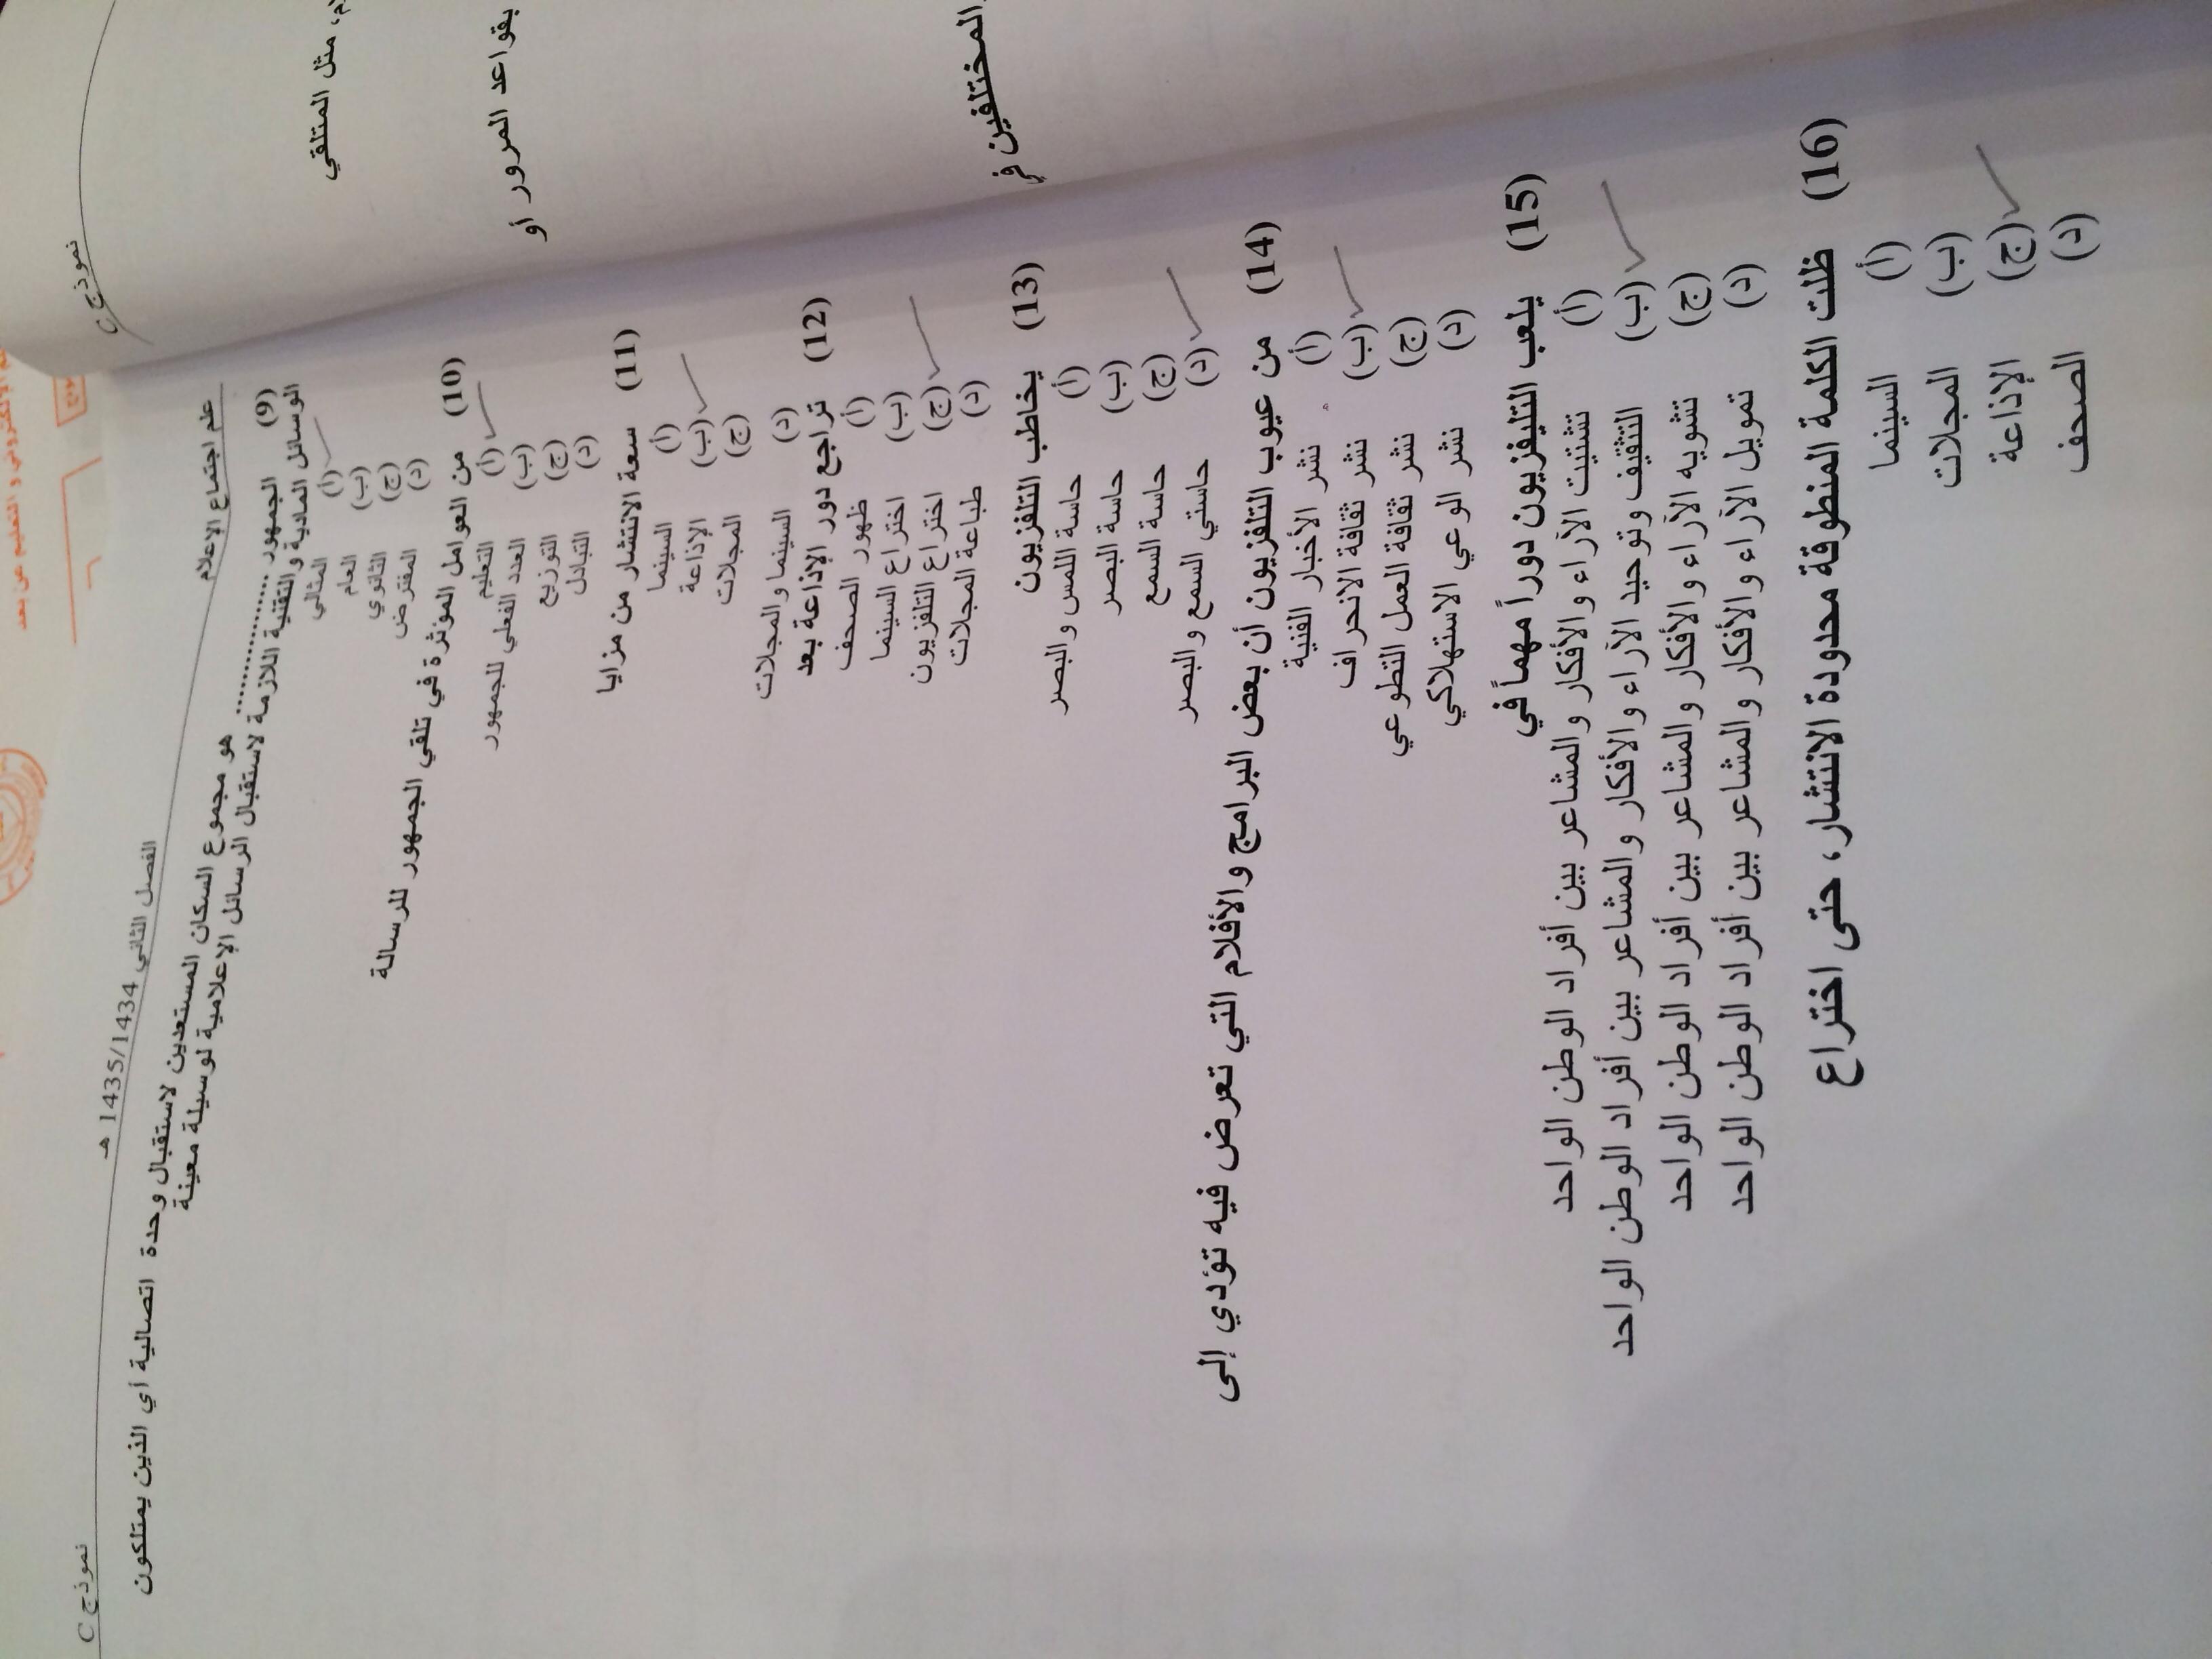 نموذج C
علم اجتماع الإعلام
الفصل الثاني 1435/1434 هـ
نموذج C
(9) الجمهور ............ هو مجموع السكان المستعدين لاستقبال وحدة اتصالية أي الذين يمتلكون
الوسائل المادية والتقنية اللازمة لاستقبال الرسائل الإعلامية لوسيلة معينة
(أ) المثالي
(ب) العام
(ج) الثانوي
(د) المفترض
(10) من العوامل الموثرة في تلقي الجمهور للرسالة
(أ) التعليم
(ب) العدد الفعلي للجمهور
(ج) التوزيع
(د) التبادل
(11) سعة الانتشار من مزايا
(أ) السينما
(ب) الإذاعة
(ج) المجلات
(د) السينما والمجلات
(12) تراجع دور الإذاعة بعد
(أ) ظهور الصحف
(ب) اختراع السينما
(ج) اختراع التلفزيون
(د) طباعة المجلات
(13) يخاطب التلفزيون
(أ) حاسة اللمس والبصر
(ب) حاسة البصر
(ج) حاسة السمع
(د) حاستي السمع والبصر
(14) من عيوب التلفزيون أن بعض البرامج والأفلام التي تعرض فيه تؤدي إلى
(أ) نشر الأخبار الفنية
(ب) نشر ثقافة الانحراف
(ج) نشر ثقافة العمل التطوعي
(د) نشر الوعي الاستهلاكي
(15) يلعب التليفزيون دوراً مهماً في
(أ) تشتيت الآراء والأفكار والمشاعر بين أفراد الوطن الواحد
(ب) التثقيف وتوحيد الآراء والأفكار والمشاعر بين أفراد الوطن الواحد
(ج) تشويه الآراء والأفكار والمشاعر بين أفراد الوطن الواحد
(د) تمويل الآراء والأفكار والمشاعر بين أفراد الوطن الواحد
(16) ظلت الكلمة المنطوقة محدودة الانتشار، حتى اختراع
(أ) السينما
(ب) المجلات
(ج) الإذاعة
(د) الصحف
مثل المتلقي
بقواعد المرور أو
المختلفين في